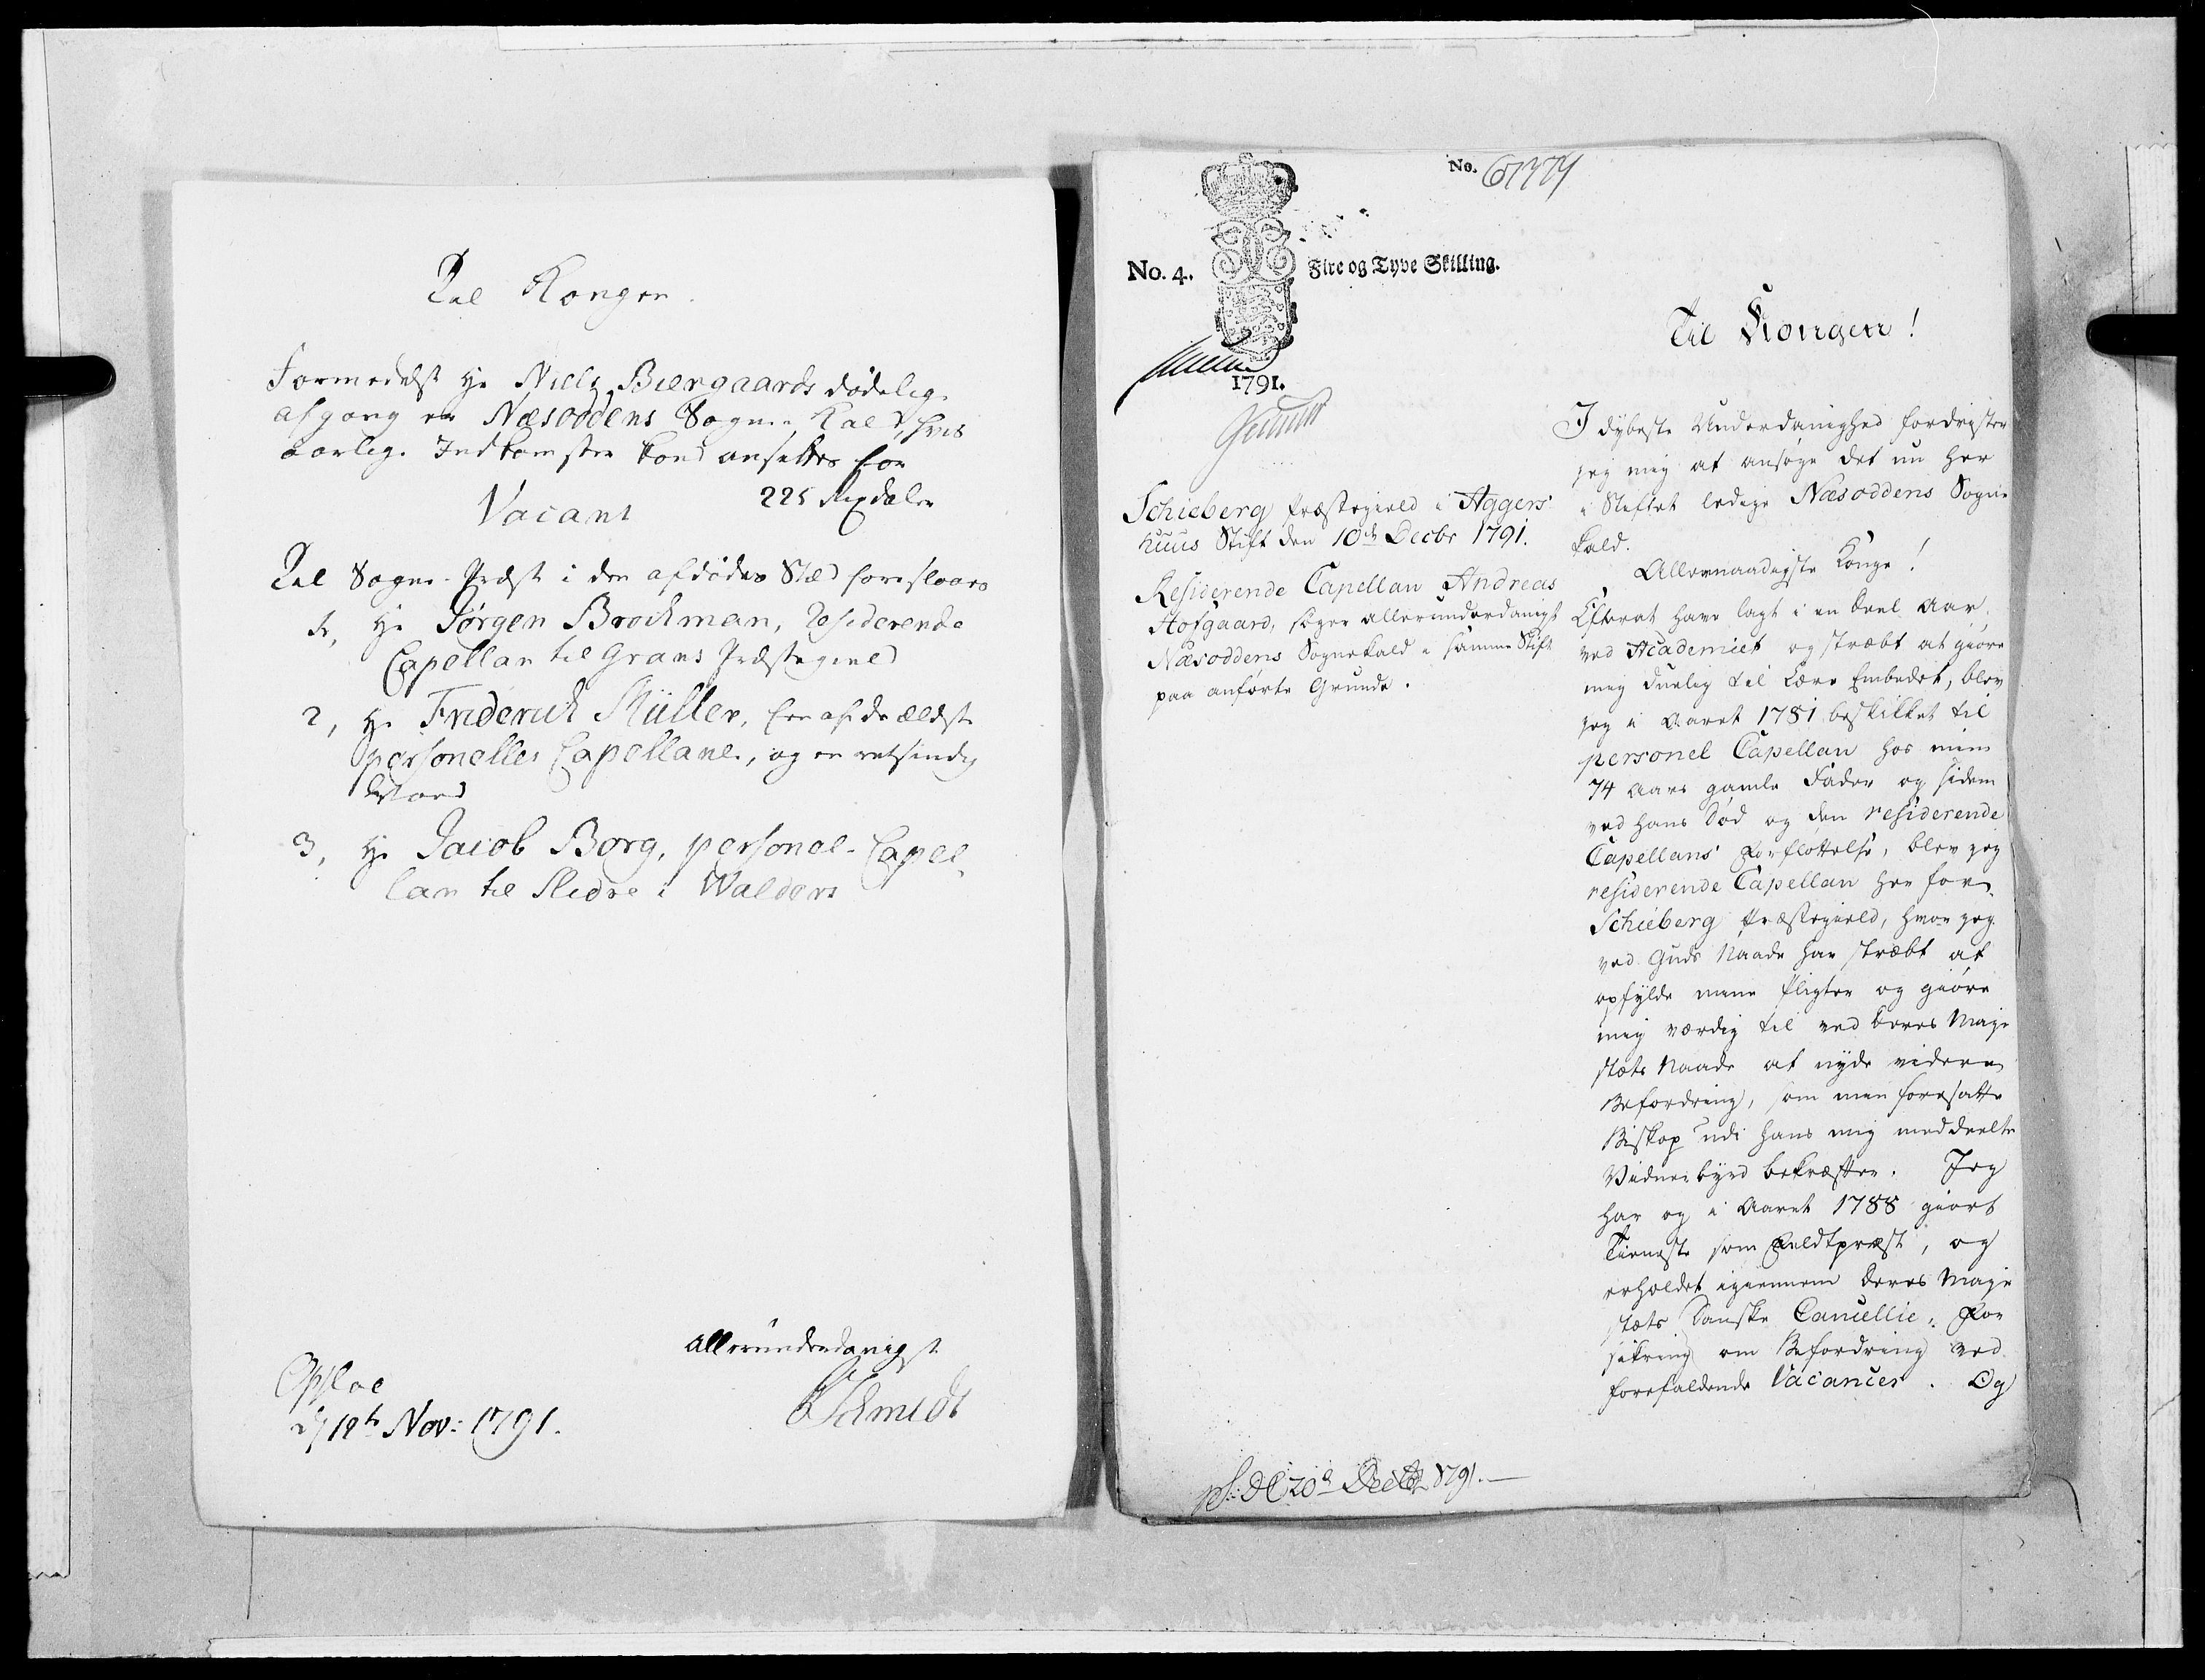 Til Kongen.
Formedelst Hr Niels Biergaards dødelig
afgang er Næsoddens Sogne Kald, hvis
aarlig Indkomster kand ansættes for
225 Rixdaler
Vacant
Til Sogne-Præst i den afdødes Stæd foreslaaes
1, Hr Jørgen Brochman, Residerende
Capellan til Grans Præstegield
2, Hr Friderich Müller, een af de ældste
personelle Capellaner, og en retsindig
Mand
3, Hr Jacob Borg, personel-Capel-
lan til Slidre i Walders
Allerunderdanigst
Opsloe
d 18de Nov: 1791.
Schmidt
No. 4.
Fire og Tyve Skilling.
1791.
Schieberg Præstegield i Aggers-
huus Stift den 10de Decbr 1791.
Residerende Capellan Andreas
Hofgaard, søger allerunderdanigst
Næsoddens Sognekald i samme Stift
paa anførte Grunde.
No.
Til Kongen!
I dybeste Underdanighed fordrister
jeg mig at ansøge det nu her
i Stiftet ledige Næsoddens Sogne
kald.
Allernaadigste Konge!
Efterat have lagt i en deel Aar
ved Academiet og stræbt at giøre
mig duelig til Lære Embedet, blev
jeg i Aaret 1781 beskikket til
personel Capellan hos min
74 Aars gamle Fader og siden
ved hans Død og den residerende
Capellans Forfløttelse, blev jeg
residerende Capellan her for
Schieberg Præstegield, hvor jeg
ved Guds Naade har stræbt at
opfylde mine Pligter og giøre
mig værdig til ved Deres Maje
stæts Naade at nyde videre
Befordring, som min foresatte
Biskop udi hans mig meddeelte
Vidnesbyrd bekræfter. Jeg
har og i Aaret 1788 giort
Tieneste som Feldtpræst, og
erholdet igiennem Deres Maje
stæts Danske Cancellie, For
sikring om Befordring ved
forefaldende Vacancer. Og
20de Decbr 1791.